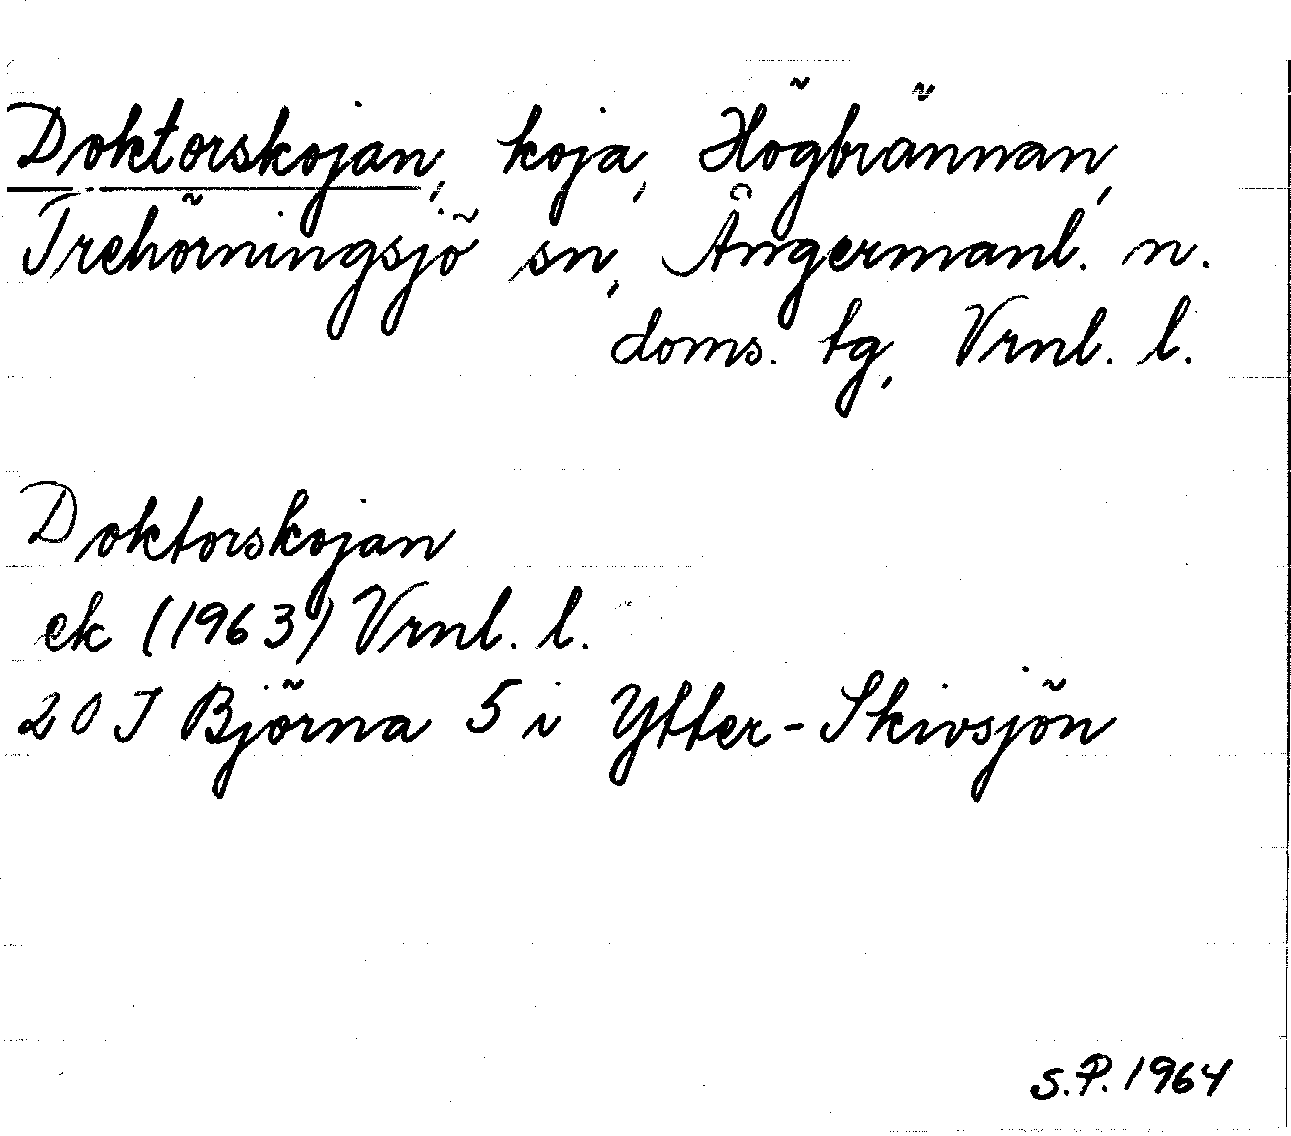 Doktorskojan, koja, Högbrännan,
Trehörningsjö sn, Ångermanl. n.
doms. tg, Vrnl. l.
Doktorskojan
ek (1963) Vrnl. l.
20 J Björna 5 i Ytter-Skivsjön
S.P. 1964